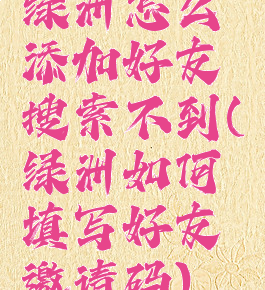 绿洲怎么
添加好友
搜索不到(
绿洲如何
填写好友
邀请码)